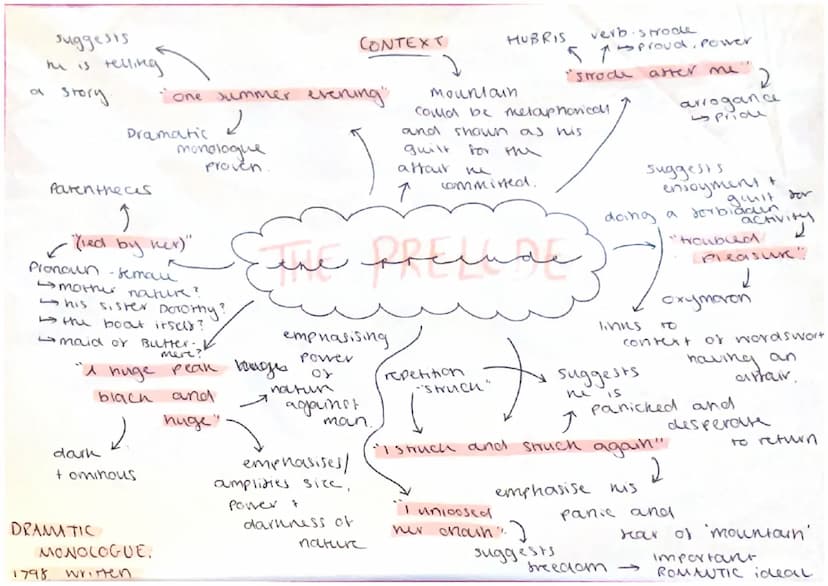 suggests
he is telling
a story
"one summer evening"
Dramatic
monologue
proven.
CONTEXT
mountain
could be metaphorical
and shown as his
guilt for the
affair he
committed.
HUBRIS
verb-strode
↳ proud, power
"strode after me"
arrogance
↳ pride
Parentheces
"(led by her)"
Pronoun - female
↳ mother nature?
↳ his sister Dorothy?
↳ the boat itself?
↳ maid of Butter-
mere?
THE PRELUDE
the prelude
suggests
enjoyment +
guilt for
doing a forbidden
activity
"troubled
pleasure"
oxymoron
links to
context of wordswort
having an
affair.
"A huge peak
black and
huge"
dark
+ ominous
emphasising
power
of
nature
against
man.
emphasises/
amplifies size,
power +
darkness of
nature
repetition
"struck"
suggests
he is
panicked and
desperate
to return
"I struck and struck again"
emphasise his
panic and
fear of 'mountain'
"I unloosed
her chain"
suggests
freedom → important
ROMANTIC ideal
DRAMATIC
MONOLOGUE.
1798 written